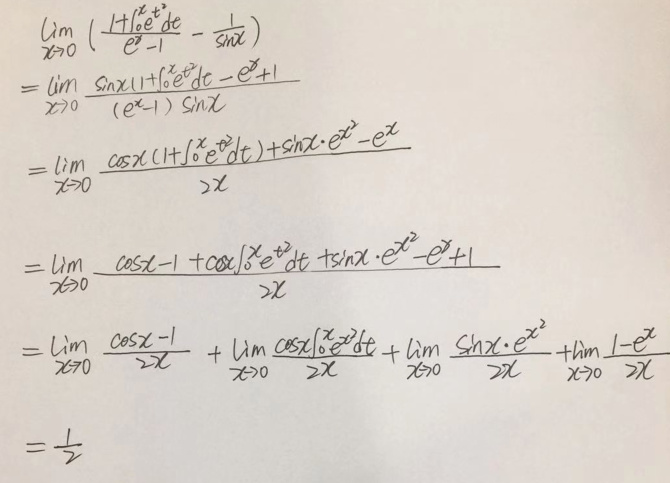 lim x→0 ( (1+∫₀ˣ e^{t²}dt)/(eˣ-1) - 1/sinx )
= lim x→0 (sinx(1+∫₀ˣ e^{t²}dt - eˣ+1)/((eˣ-1) sinx)
= lim x→0 (cosx(1+∫₀ˣ e^{t²}dt)+sinx·e^{x²}-eˣ)/(2x)
= lim x→0 (cosx-1+cosx∫₀ˣ e^{t²}dt+sinx·e^{x²}-eˣ+1)/(2x)
= lim x→0 (cosx-1)/(2x) + lim x→0 (cosx∫₀ˣ e^{t²}dt)/(2x) + lim x→0 (sinx·e^{x²})/(2x) + lim x→0 (1-eˣ)/(2x)
= 1/2